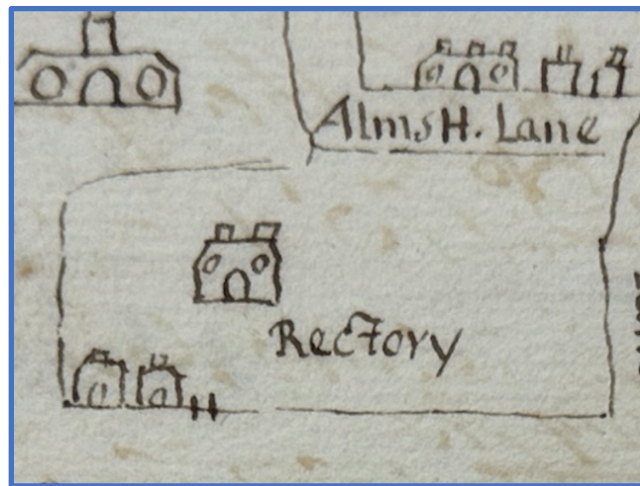 AlmsH. Lane
Rectory